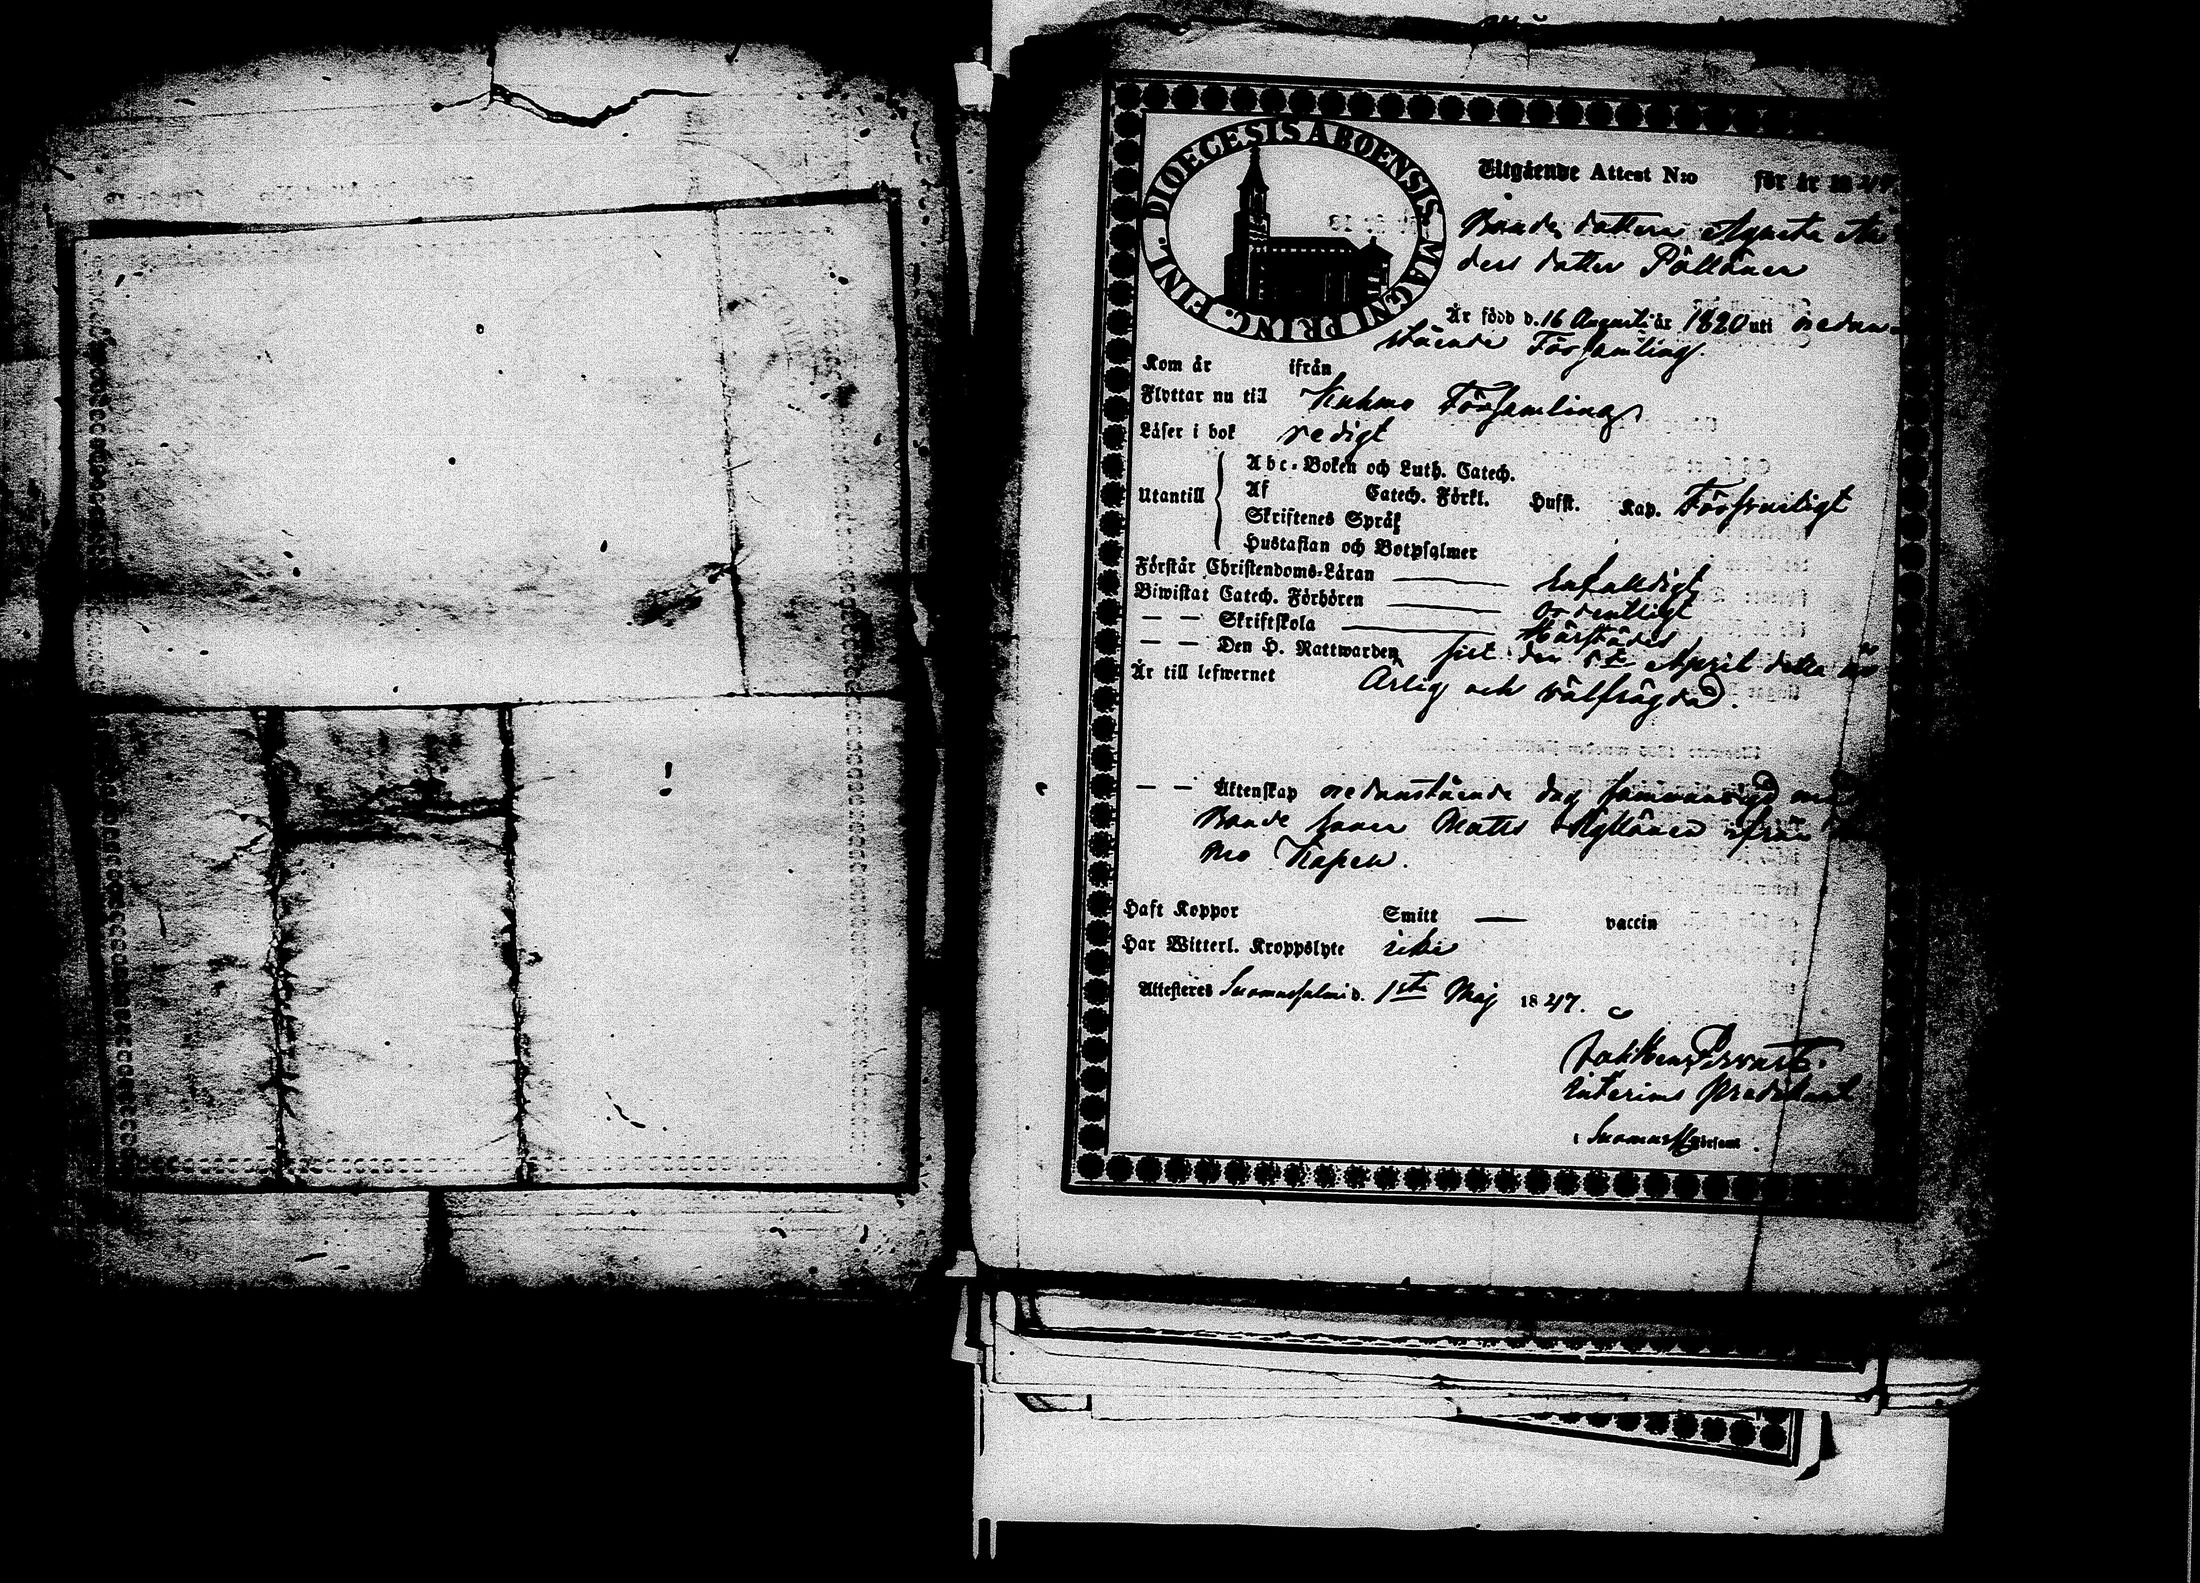 DIOECESIS ABOENSIS MAGNI PRINC. FINL.
Utgående Attest N:o för år 1847
Bonde dottern Agneta An
ders dotter Pöllänen
Är född d. 16 Augusti år 1820 uti nedan
stående Församling.
Kom år ifrån
Flyttar nu till Kuhmo Församling
Läser i bok redigt
Utantill
Abc-Boken och Luth. Catech.
Af Catech. Förkl. Husst. Kap. Försvarligt
Skriftenes Språk
Hustaflan och Botpsalmer
Förstår Christendoms-Läran Enfaldigt
Biwistat Catech. Förhören Ordentligt
— — Skriftskola Härstädes
— — Den H. Nattwarden sist den 5te April detta år
Är till lefwernet Ärlig och välfrägdad.
— — Äktenskap nedanstående dag sammanvigd med
Bonde sonen Matts ifrån
mo Kapell.
Haft Koppor Smitt — vaccin
Har Witterl. Kroppslyte icke
Attesteres Suomussalmi d. 1sta Maj 1847.
Interims Predikant
i Suomuss Församl.